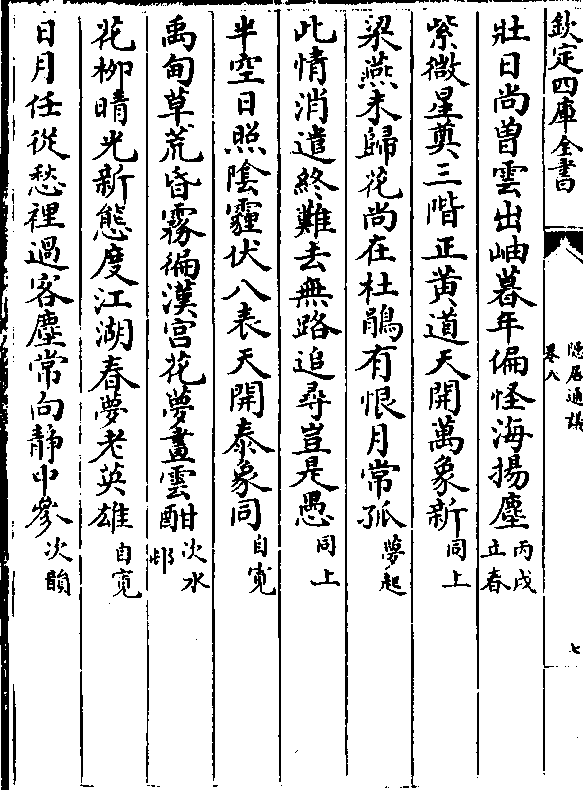 欽定四庫全書
隱居通議
卷八
七
壯日尚曽雲出岫暮年偏怪海揚塵丙戌立春
紫微星奠三階正黄道天開萬象新同上
梁燕未歸花尚在杜鵑有恨月常孤夢起
此情消遣終難去無路追尋豈是愚同上
半空日照陰霾伏八表天開泰象同自寛
禹甸草荒昏霧徧漢宫花夢晝雲酣次水邨
花柳晴光新態度江湖春夢老英雄自寛
日月任從愁裡過客塵常向静中參次韻